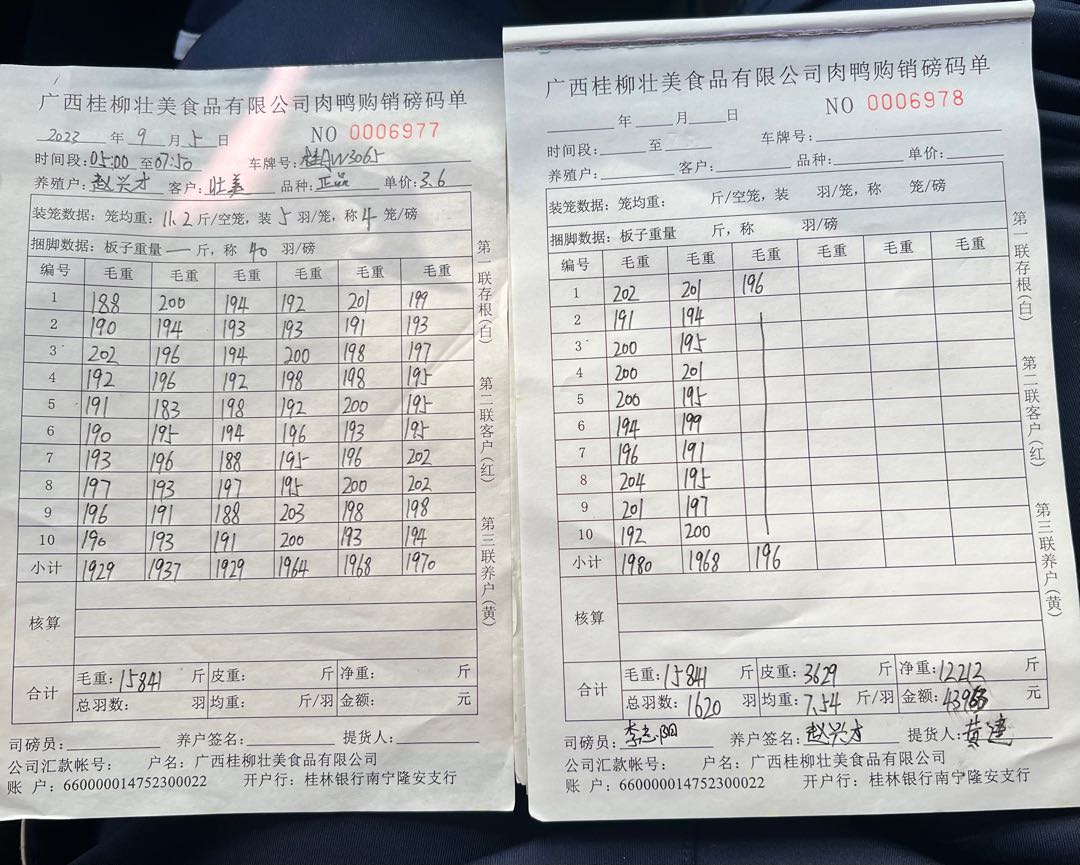 广西桂柳壮美食品有限公司肉鸭购销磅码单
2023 年 9 月 5 日 NO 0006977
时间段: 05:00 至 07:50 车牌号: 桂AW3065
养殖户: 赵兴才 客户: 壮美 品种: 正品 单价: 3.6
装笼数据: 笼均重: 11.2 斤/空笼, 装 5 羽/笼, 称 4 笼/磅
捆脚数据: 板子重量 — 斤, 称 40 羽/磅
编号 毛重 毛重 毛重 毛重 毛重 毛重
1 188 200 194 192 201 199
2 190 194 193 193 191 193
3 202 196 194 200 198 197
4 192 196 192 198 198 195
5 191 183 198 192 200 195
6 190 195 194 196 193 195
7 193 196 188 195 196 202
8 197 193 197 195 200 202
9 196 191 188 203 198 198
10 190 193 191 200 193 194
小计 1929 1937 1929 1964 1968 1970
核算
合计
毛重: 15841 斤 皮重: 斤 净重: 斤
总羽数: 羽 均重: 斤/羽 金额: 元
司磅员: 养户签名: 提货人:
公司汇款帐号: 户名: 广西桂柳壮美食品有限公司
账 户: 660000014752300022 开户行: 桂林银行南宁隆安支行
第一联存根(白) 第二联客户(红) 第三联养户(黄)
广西桂柳壮美食品有限公司肉鸭购销磅码单
年 月 日 NO 0006978
时间段: 至 车牌号:
养殖户: 客户: 品种: 单价:
装笼数据: 笼均重: 斤/空笼, 装 羽/笼, 称 笼/磅
捆脚数据: 板子重量 斤, 称 羽/磅
编号 毛重 毛重 毛重 毛重 毛重 毛重
1 202 201 196
2 191 194
3 200 195
4 200 201
5 200 195
6 194 199
7 196 191
8 204 195
9 201 197
10 192 200
小计 1980 1968 196
核算
合计
毛重: 15841 斤 皮重: 3629 斤 净重: 12212 斤
总羽数: 1620 羽 均重: 7.54 斤/羽 金额: 元
司磅员: 养户签名: 赵兴才 提货人:
公司汇款帐号: 户名: 广西桂柳壮美食品有限公司
账 户: 660000014752300022 开户行: 桂林银行南宁隆安支行
第一联存根(白) 第二联客户(红) 第三联养户(黄)